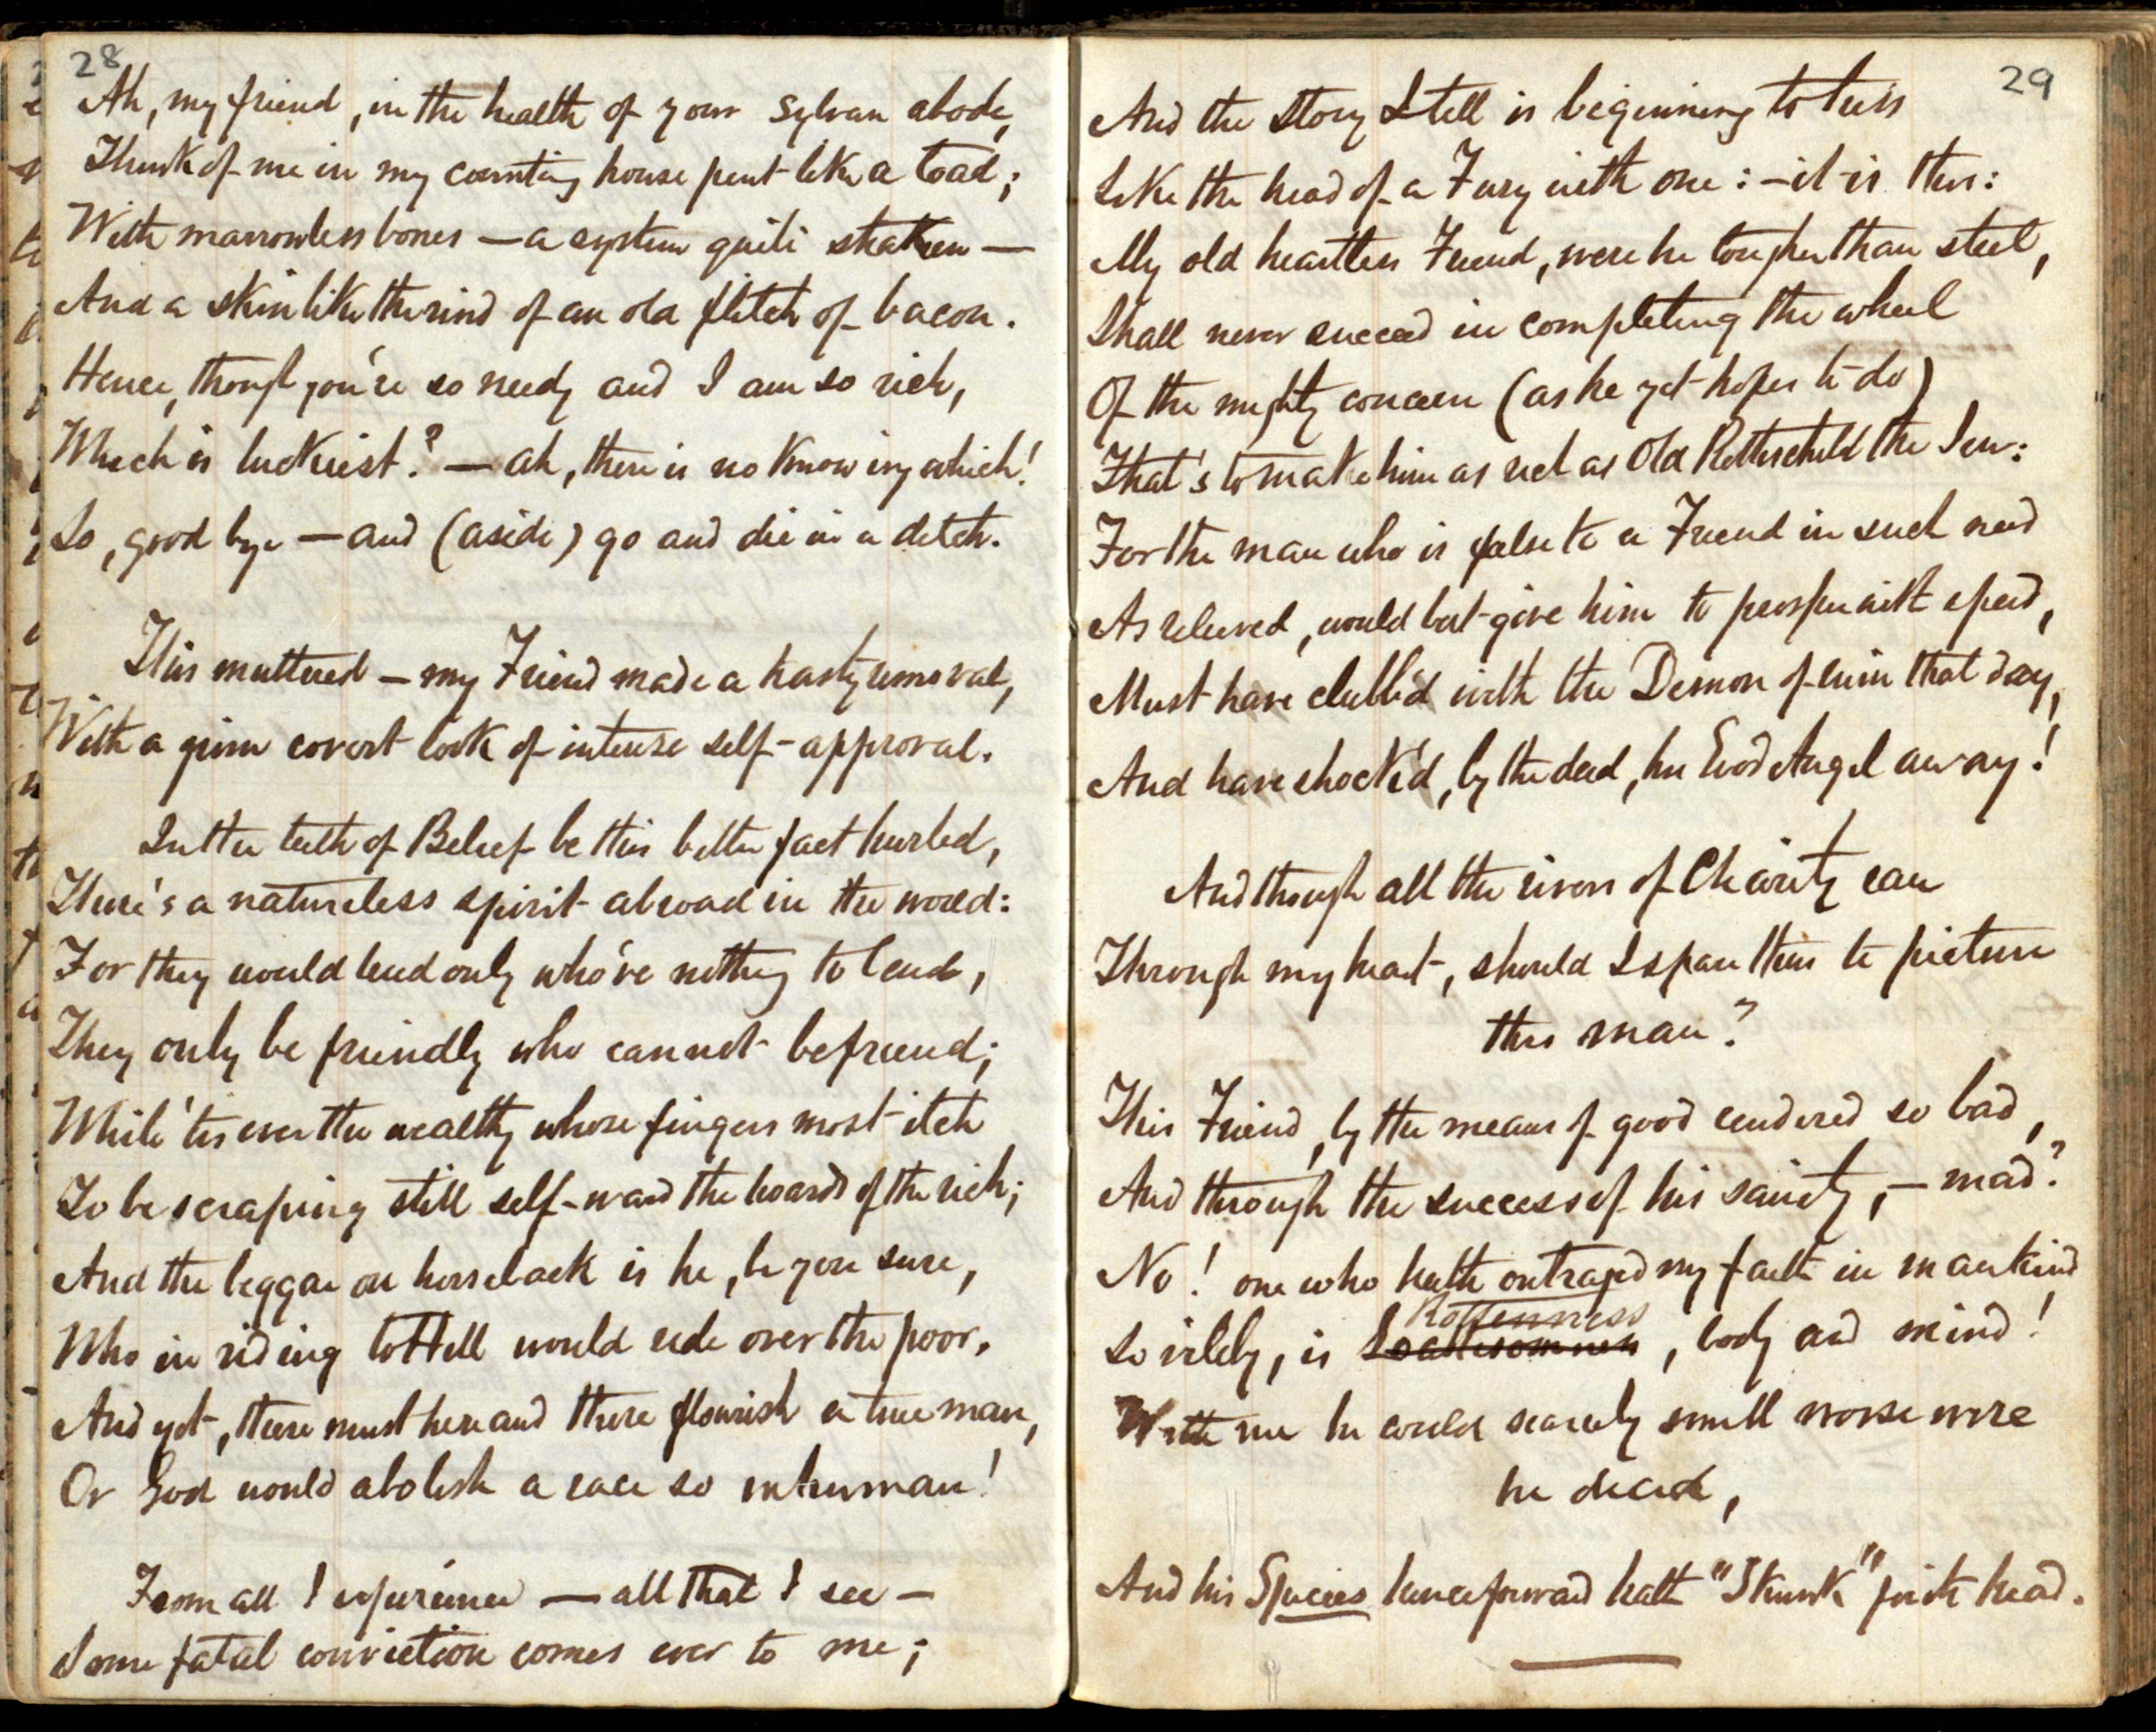 28
Ah, my friend, in the health of your sylvan abode,
Think of me in my counting house pent like a toad;
With marrowless bones — a system quite shaken —
And a skin like the rind of an old flitch of bacon.
Hence, though you're so needy and I am so rich,
Which is luckiest? — ah, there is no knowing which!
So, good bye — and (aside) go and die in a ditch.
This muttered — my Friend made a hasty removal,
With a grim covert look of intense self-approval.
In the teeth of Belief be this bitter fact hurled,
There's a natureless spirit abroad in the world:
For they would lend only who've nothing to lend,
They only be friendly who cannot befriend;
While 'tis ever the wealthy whose fingers most itch
To be scraping still self-ward the hoards of the rich;
And the beggar on horseback is he, be you sure,
Who in riding to Hell would ride over the poor.
And yet, there must here and there flourish a true man,
Or God would abolish a race so inhuman!
From all I experience — all that I see —
Some fatal conviction comes ever to me;
29
And the story I tell is beginning to hiss
Like the head of a Fury with one: — it is this:
My old heartless Friend, were he tougher than steel,
Shall never succeed in completing the wheel
Of the mighty concern (as he yet hopes to do)
That's to make him as rich as Old Rothschild the Jew:
For the man who is false to a Friend in such need
As relieved, would but give him to prosper with speed,
Must have clubb'd with the Demon of ruin that day,
And have shock'd, by the deed, his Good Angel away!
And though all the rivers of Charity ran
Through my heart, should I spare them to picture
this man?
This Friend, by the means of good rendered so bad,
And through the success of his sanity, — mad?
No! one who hath outraged my faith in mankind
Rottenness
So vilely, is Loathsomeness, body and mind!
With me he could scarcely smell worse were
he dead,
And his Species henceforward hath "Skunk" for its head.